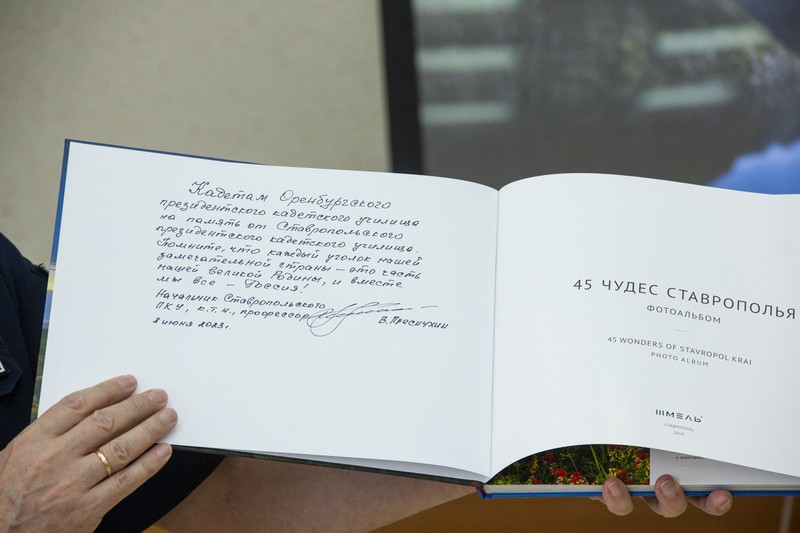 Кадетам Оренбургского
президентского кадетского училища
на память от Ставропольского
президентского кадетского училища.
Помните, что каждый уголок нашей
замечательной страны – это часть
нашей великой Родины, и вместе
мы все – Россия!
Начальник Ставропольского
ПКУ, к.т.н., профессор В. Пресичухин
2 июня 2023г.
45 ЧУДЕС СТАВРОПОЛЬЯ
ФОТОАЛЬБОМ
45 WONDERS OF STAVROPOL KRAI
PHOTO ALBUM
ШМЕЛЬ
СТАВРОПОЛЬ